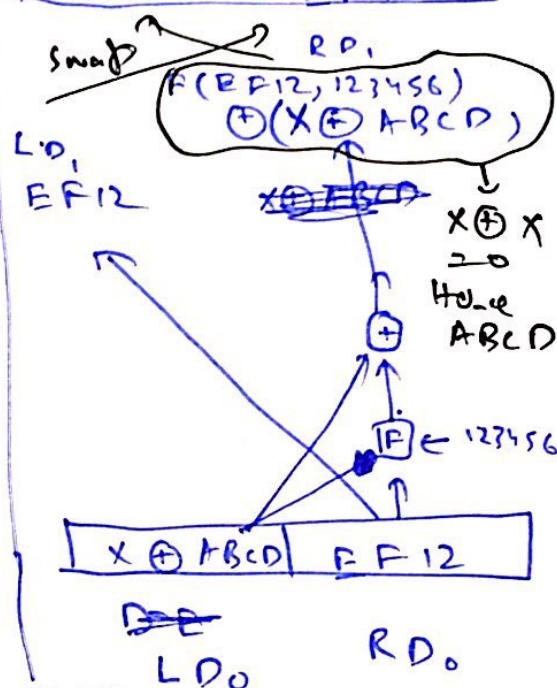 swap
RD₁
F(EF12, 123456)
⊕(X ⊕ ABCD)
LD₁
EF12
X ⊕ X
= 0
Hence
ABCD
+
F ← 123456
X ⊕ ABCD EF12
LD₀ RD₀